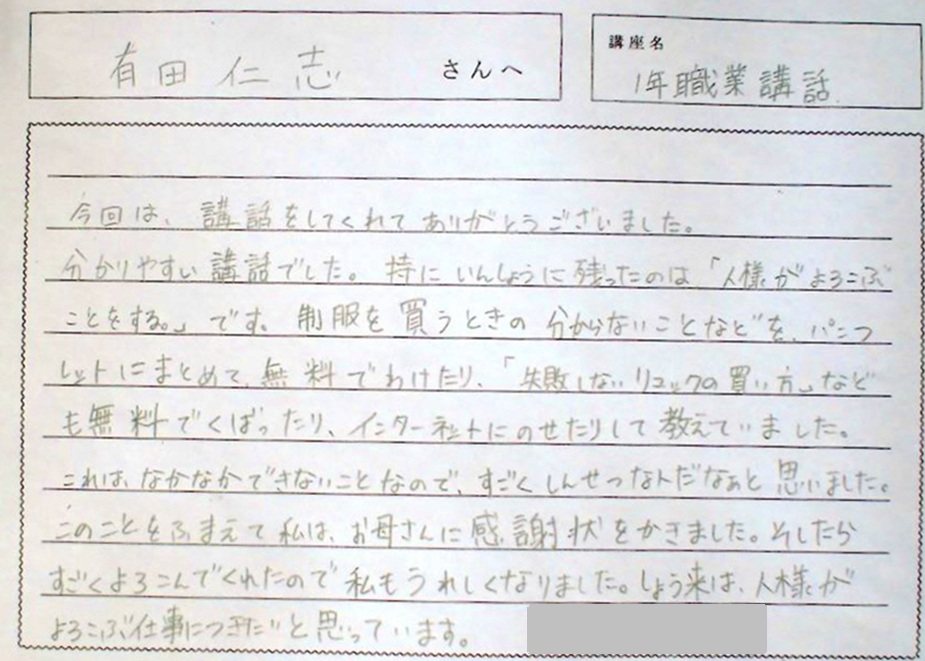 有田仁志 さんへ
講座名
1年職業講話
今回は、講話をしてくれてありがとうございました。
分かりやすい講話でした。特にいんしょうに残ったのは「人様がよろこぶ
ことをする。」です。制服を買うときの分からないことなどを、パンフ
レットにまとめて、無料でわけたり、「失敗しないリュックの買い方」など
も無料でくばったり、インターネットにのせたりして教えていました。
これは、なかなかできないことなので、すごくしんせつなんだなぁと思いました。
このことをふまえて私は、お母さんに感謝状をかきました。そしたら
すごくよろこんでくれたので私もうれしくなりました。しょう来は、人様が
よろこぶ仕事につきたいと思っています。